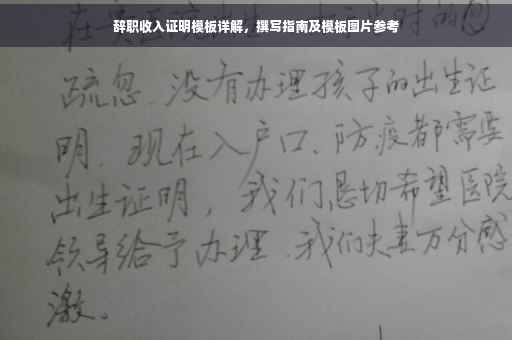 辞职收入证明模板详解，撰写指南及模板图片参考
疏忽.没有办理孩子的出生证
明.现在入户口、防疫都需要
出生证明，我们恳切希望医院
领导给予办理.我们夫妻万分感
激。